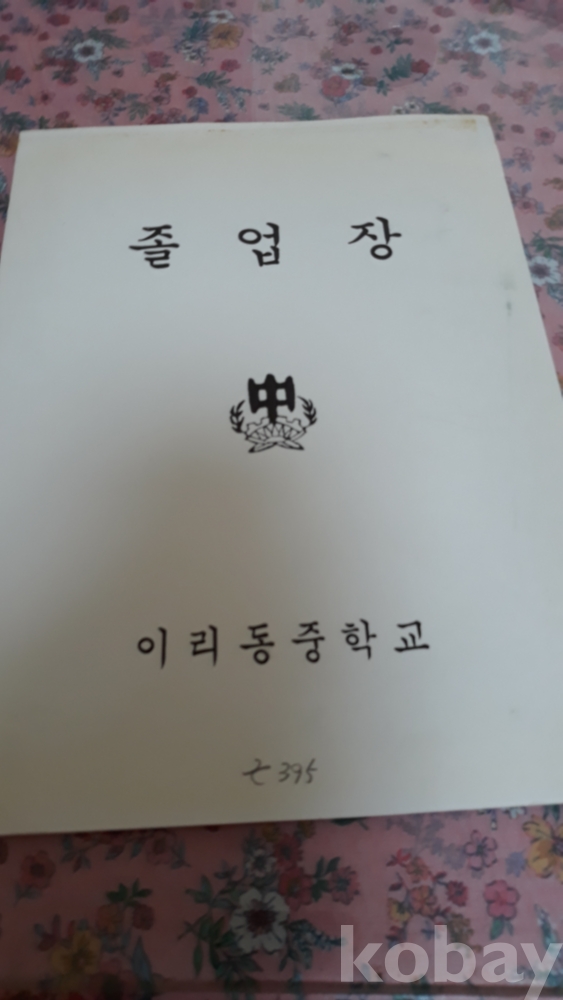 졸 업 장
中
이 리 동 중 학 교
395
kobay